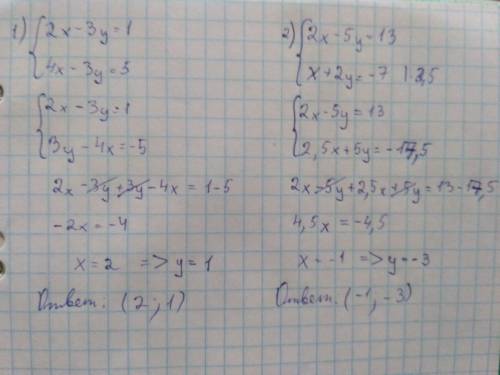 1) { 2x - 3y = 1
4x - 3y = 5
{ 2x - 3y = 1
3y - 4x = -5
2x - 3y + 3y - 4x = 1 - 5
-2x = -4
x = 2 => y = 1
Ответ: (2; 1)
2) { 2x - 5y = 13
x + 2y = -7 | · 2,5
{ 2x - 5y = 13
2,5x + 5y = -17,5
2x - 5y + 2,5x + 5y = 13 - 17,5
4,5x = -4,5
x = -1 => y = -3
Ответ: (-1; -3)